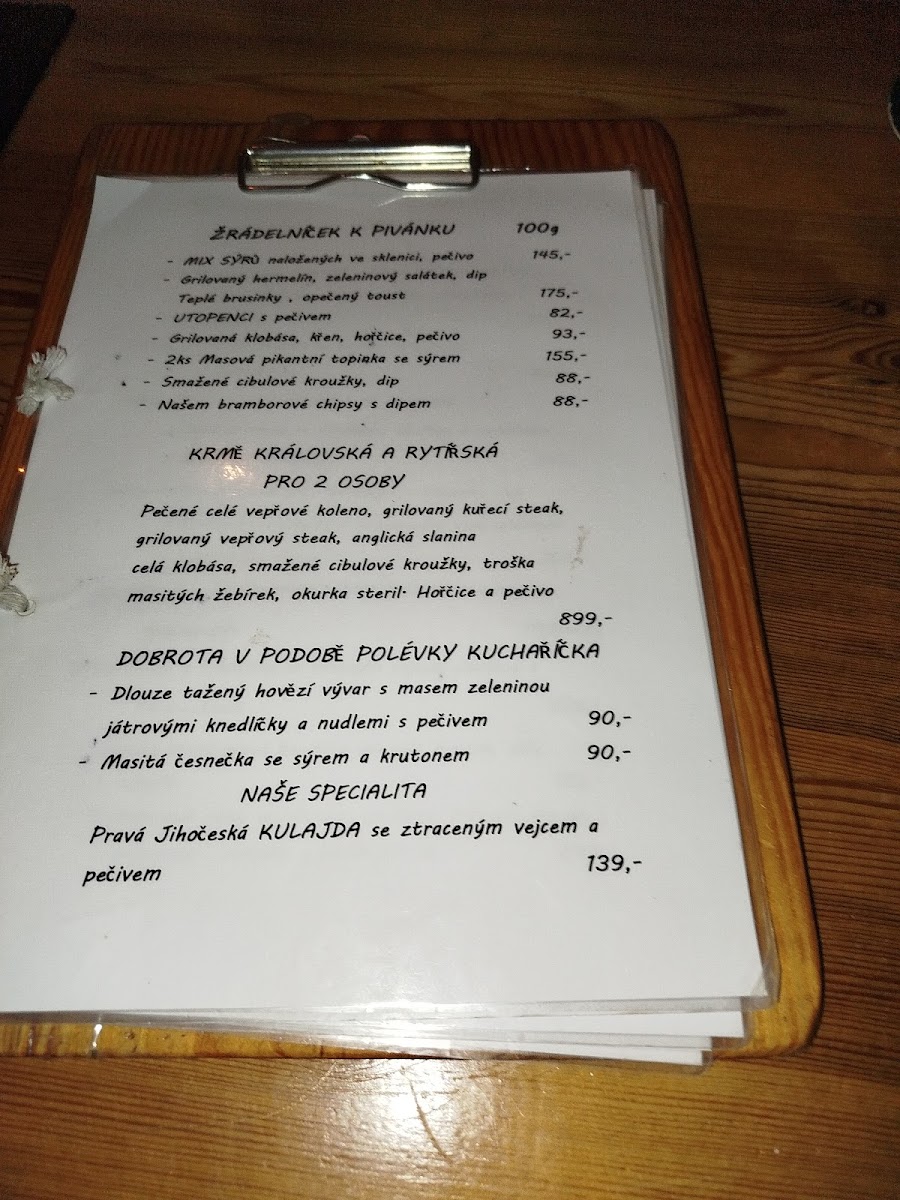 ŽRÁDELNÍČEK K PIVÁNKU 100g
- MIX SÝRŮ naložených ve sklenici, pečivo 145,-
- Grilovaný hermelín, zeleninový salátek, dip
Teplé brusinky , opečený toust 175,-
- UTOPENCI s pečivem 82,-
- Grilovaná klobása, křen, hořčice, pečivo 93,-
- 2ks Masová pikantní topinka se sýrem 155,-
- Smažené cibulové kroužky, dip 88,-
- Našem bramborové chipsy s dipem 88,-
KRMĚ KRÁLOVSKÁ A RYTÍŘSKÁ
PRO 2 OSOBY
Pečené celé vepřové koleno, grilovaný kuřecí steak,
grilovaný vepřový steak, anglická slanina
celá klobása, smažené cibulové kroužky, troška
masitých žebírek, okurka steril. Hořčice a pečivo
899,-
DOBROTA V PODOBĚ POLÉVKY KUCHAŘÍČKA
- Dlouze tažený hovězí vývar s masem zeleninou
játrovými knedlíčky a nudlemi s pečivem 90,-
- Masitá česnečka se sýrem a krutonem 90,-
NAŠE SPECIALITA
Pravá Jihočeská KULAJDA se ztraceným vejcem a
pečivem 139,-